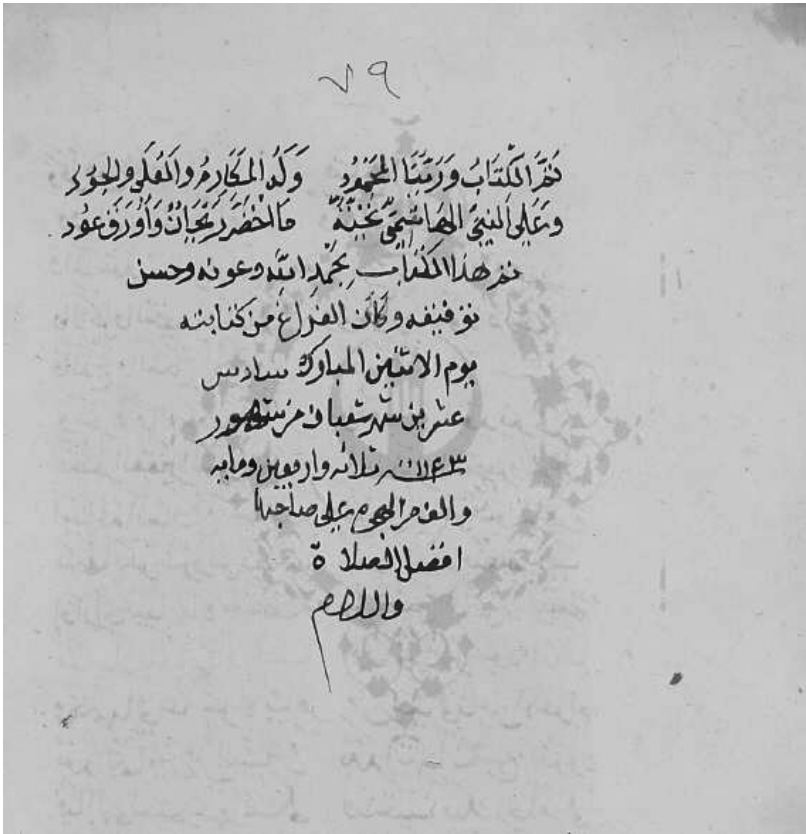 ٧٩
تم الكتاب وربنا المحمود وله المكارم والعلى والجود
وعلى النبي الهاشمي تحية ما اخضر ريحان وأورق عود
تم هذا الكتاب بحمد الله وعونه وحسن
توفيقه وكان الفراغ من كتابته
يوم الاثنين المبارك سادس
عشرين شهر شعبان من شهور
سنة ١١٤٣ ثلاثه واربعين ومايه
والف من الهجره على صاحبها
افضل الصلاة
والسلام